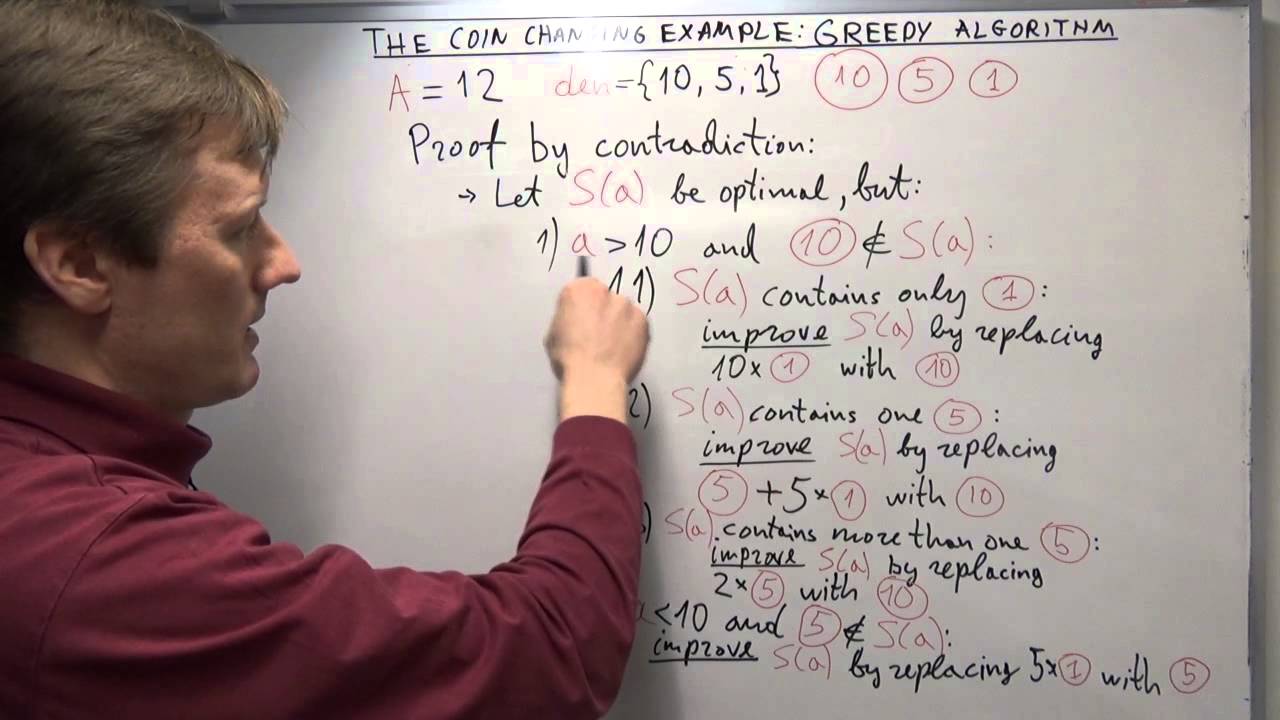 THE COIN CHANGING EXAMPLE: GREEDY ALGORITHM
A = 12 den = {10, 5, 1} 10 5 1
Proof by contradiction:
→ Let S(a) be optimal, but:
1) a > 10 and 10 ∉ S(a):
1) S(a) contains only 1:
improve S(a) by replacing
10× 1 with 10
2) S(a) contains one 5:
improve S(a) by replacing
5 + 5× 1 with 10
) S(a) contains more than one 5:
improve S(a) by replacing
2× 5 with 10
<10 and 5 ∉ S(a):
improve S(a) by replacing 5× 1 with 5